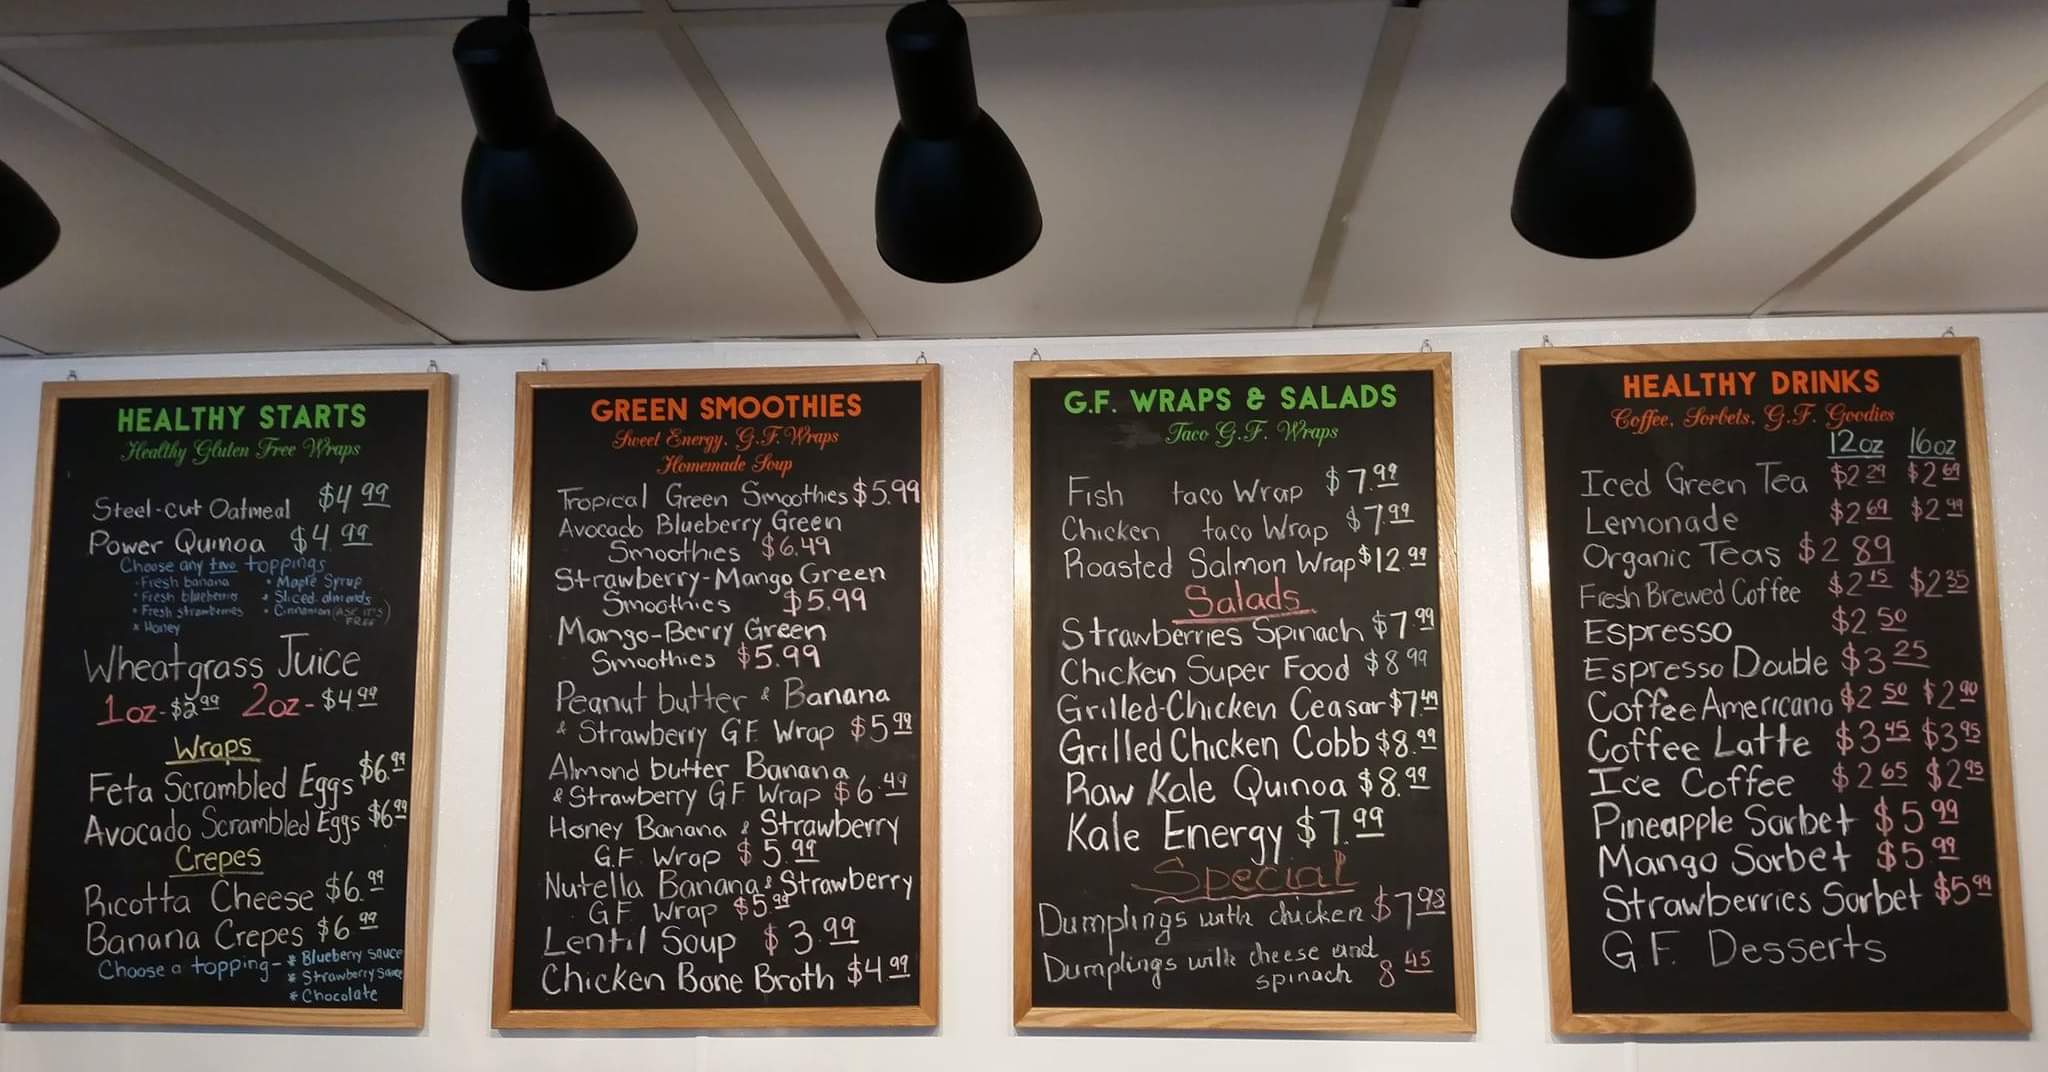 HEALTHY STARTS
Healthy Gluten Free Wraps
Steel-cut Oatmeal $4.99
Power Quinoa $4.99
Choose any two toppings
· Fresh banana · Maple Syrup
· Fresh blueberries · Sliced almonds
· Fresh strawberries · Cinnamon (ASK IT'S FREE)
* Honey
Wheatgrass Juice
1oz - $2.99 2oz - $4.99
Wraps
Feta Scrambled Eggs $6.99
Avocado Scrambled Eggs $6.99
Crepes
Ricotta Cheese $6.99
Banana Crepes $6.99
Choose a topping - * Blueberry sauce
* Strawberry sauce
* Chocolate
GREEN SMOOTHIES
Sweet Energy, G.F. Wraps
Homemade Soup
Tropical Green Smoothies $5.99
Avocado Blueberry Green
Smoothies $6.49
Strawberry-Mango Green
Smoothies $5.99
Mango-Berry Green
Smoothies $5.99
Peanut butter & Banana
& Strawberry G.F. Wrap $5.99
Almond butter Banana
& Strawberry G.F. Wrap $6.49
Honey Banana & Strawberry
G.F. Wrap $5.99
Nutella Banana & Strawberry
G.F. Wrap $5.99
Lentil Soup $3.99
Chicken Bone Broth $4.99
G.F. WRAPS & SALADS
Taco G.F. Wraps
Fish taco Wrap $7.99
Chicken taco Wrap $7.99
Roasted Salmon Wrap $12.99
Salads
Strawberries Spinach $7.99
Chicken Super Food $8.99
Grilled-Chicken Ceasar $7.49
Grilled Chicken Cobb $8.99
Raw Kale Quinoa $8.99
Kale Energy $7.99
Special
Dumplings with chicken $7.98
Dumplings with cheese and
spinach 8.45
HEALTHY DRINKS
Coffee, Sorbets, G.F. Goodies
12oz 16oz
Iced Green Tea $2.29 $2.69
Lemonade $2.69 $2.99
Organic Teas $2.89
Fresh Brewed Coffee $2.15 $2.35
Espresso $2.50
Espresso Double $3.25
Coffee Americano $2.50 $2.90
Coffee Latte $3.45 $3.95
Ice Coffee $2.65 $2.95
Pineapple Sorbet $5.99
Mango Sorbet $5.99
Strawberries Sorbet $5.99
G.F. Desserts